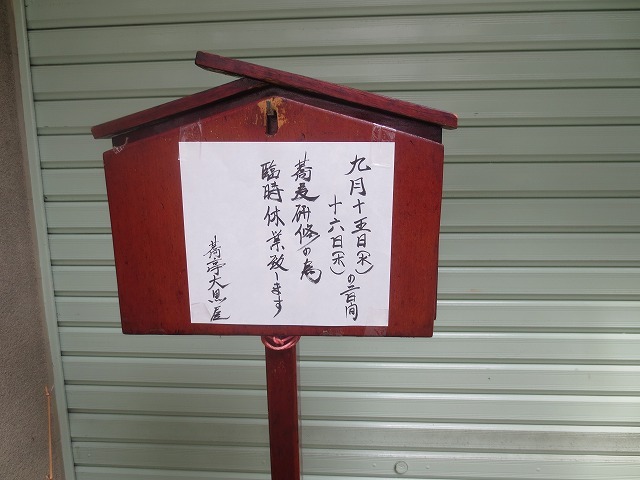 九月十五日(水)
十六日(木)
の二日間
蕎麦研修の為
臨時休業致します
蕎亭大黒屋